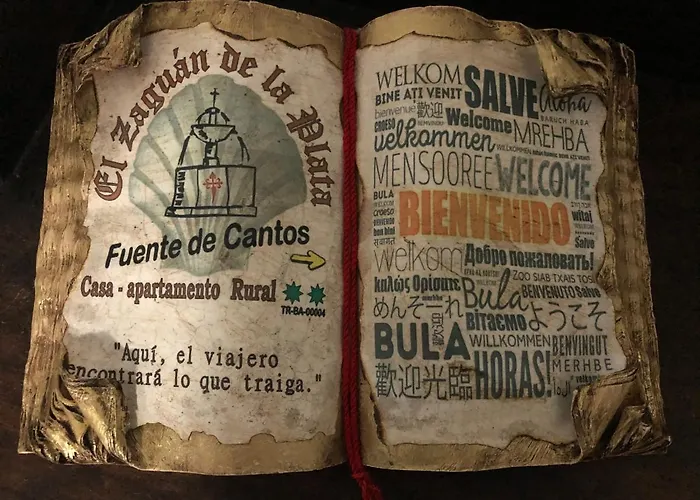 El Zaguán de la Plata
Fuente de Cantos
Casa - apartamento Rural
TR-BA-00004
"Aquí, el viajero
encontrará lo que traiga."
WELKOM
BINE AȚI VENIT
SALVE
Aloha
bienvenue
歡迎
BARUCH HABA
CROESO
Welcome
velkommen
MREHBA
MENSOOREE
WELCOME
BULA
croeso
BIENVENIDO
witaj
Salve
welkom
Добро пожаловать!
ZOO SIAB TXAIS TOS
καλώς Ορίσατε
Bula
BENVENUTO
Salve
めんそーれ
merhbe
вітаємо
ようこそ
歡迎
BULA
WILLKOMMEN
BENVINGUT
MERHBE
歡迎光臨
HORAS!